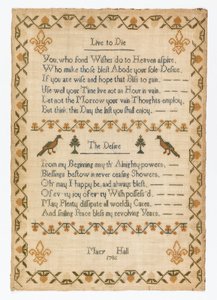 Live to Die
You, who fond Wishes do to Heaven aspire,
Who make those blest Abode your sole Desire
If you are wise and hope that Bliss to gain
Use well your Time live not an Hour in vain
Let not the Morrow your vain Thoughts employ
But think this Day the last you shall enjoy
The Desire
From my Beginning may th' Almighty powers
Blessings bestow in never ceasing Showers
Oh may I happy be, and always blest
Of ev'ry joy of ev'ry Wish possess'd
May Plenty dissipate all worldly Cares
And smiling Peace bless my revolving Years
Mary Hall